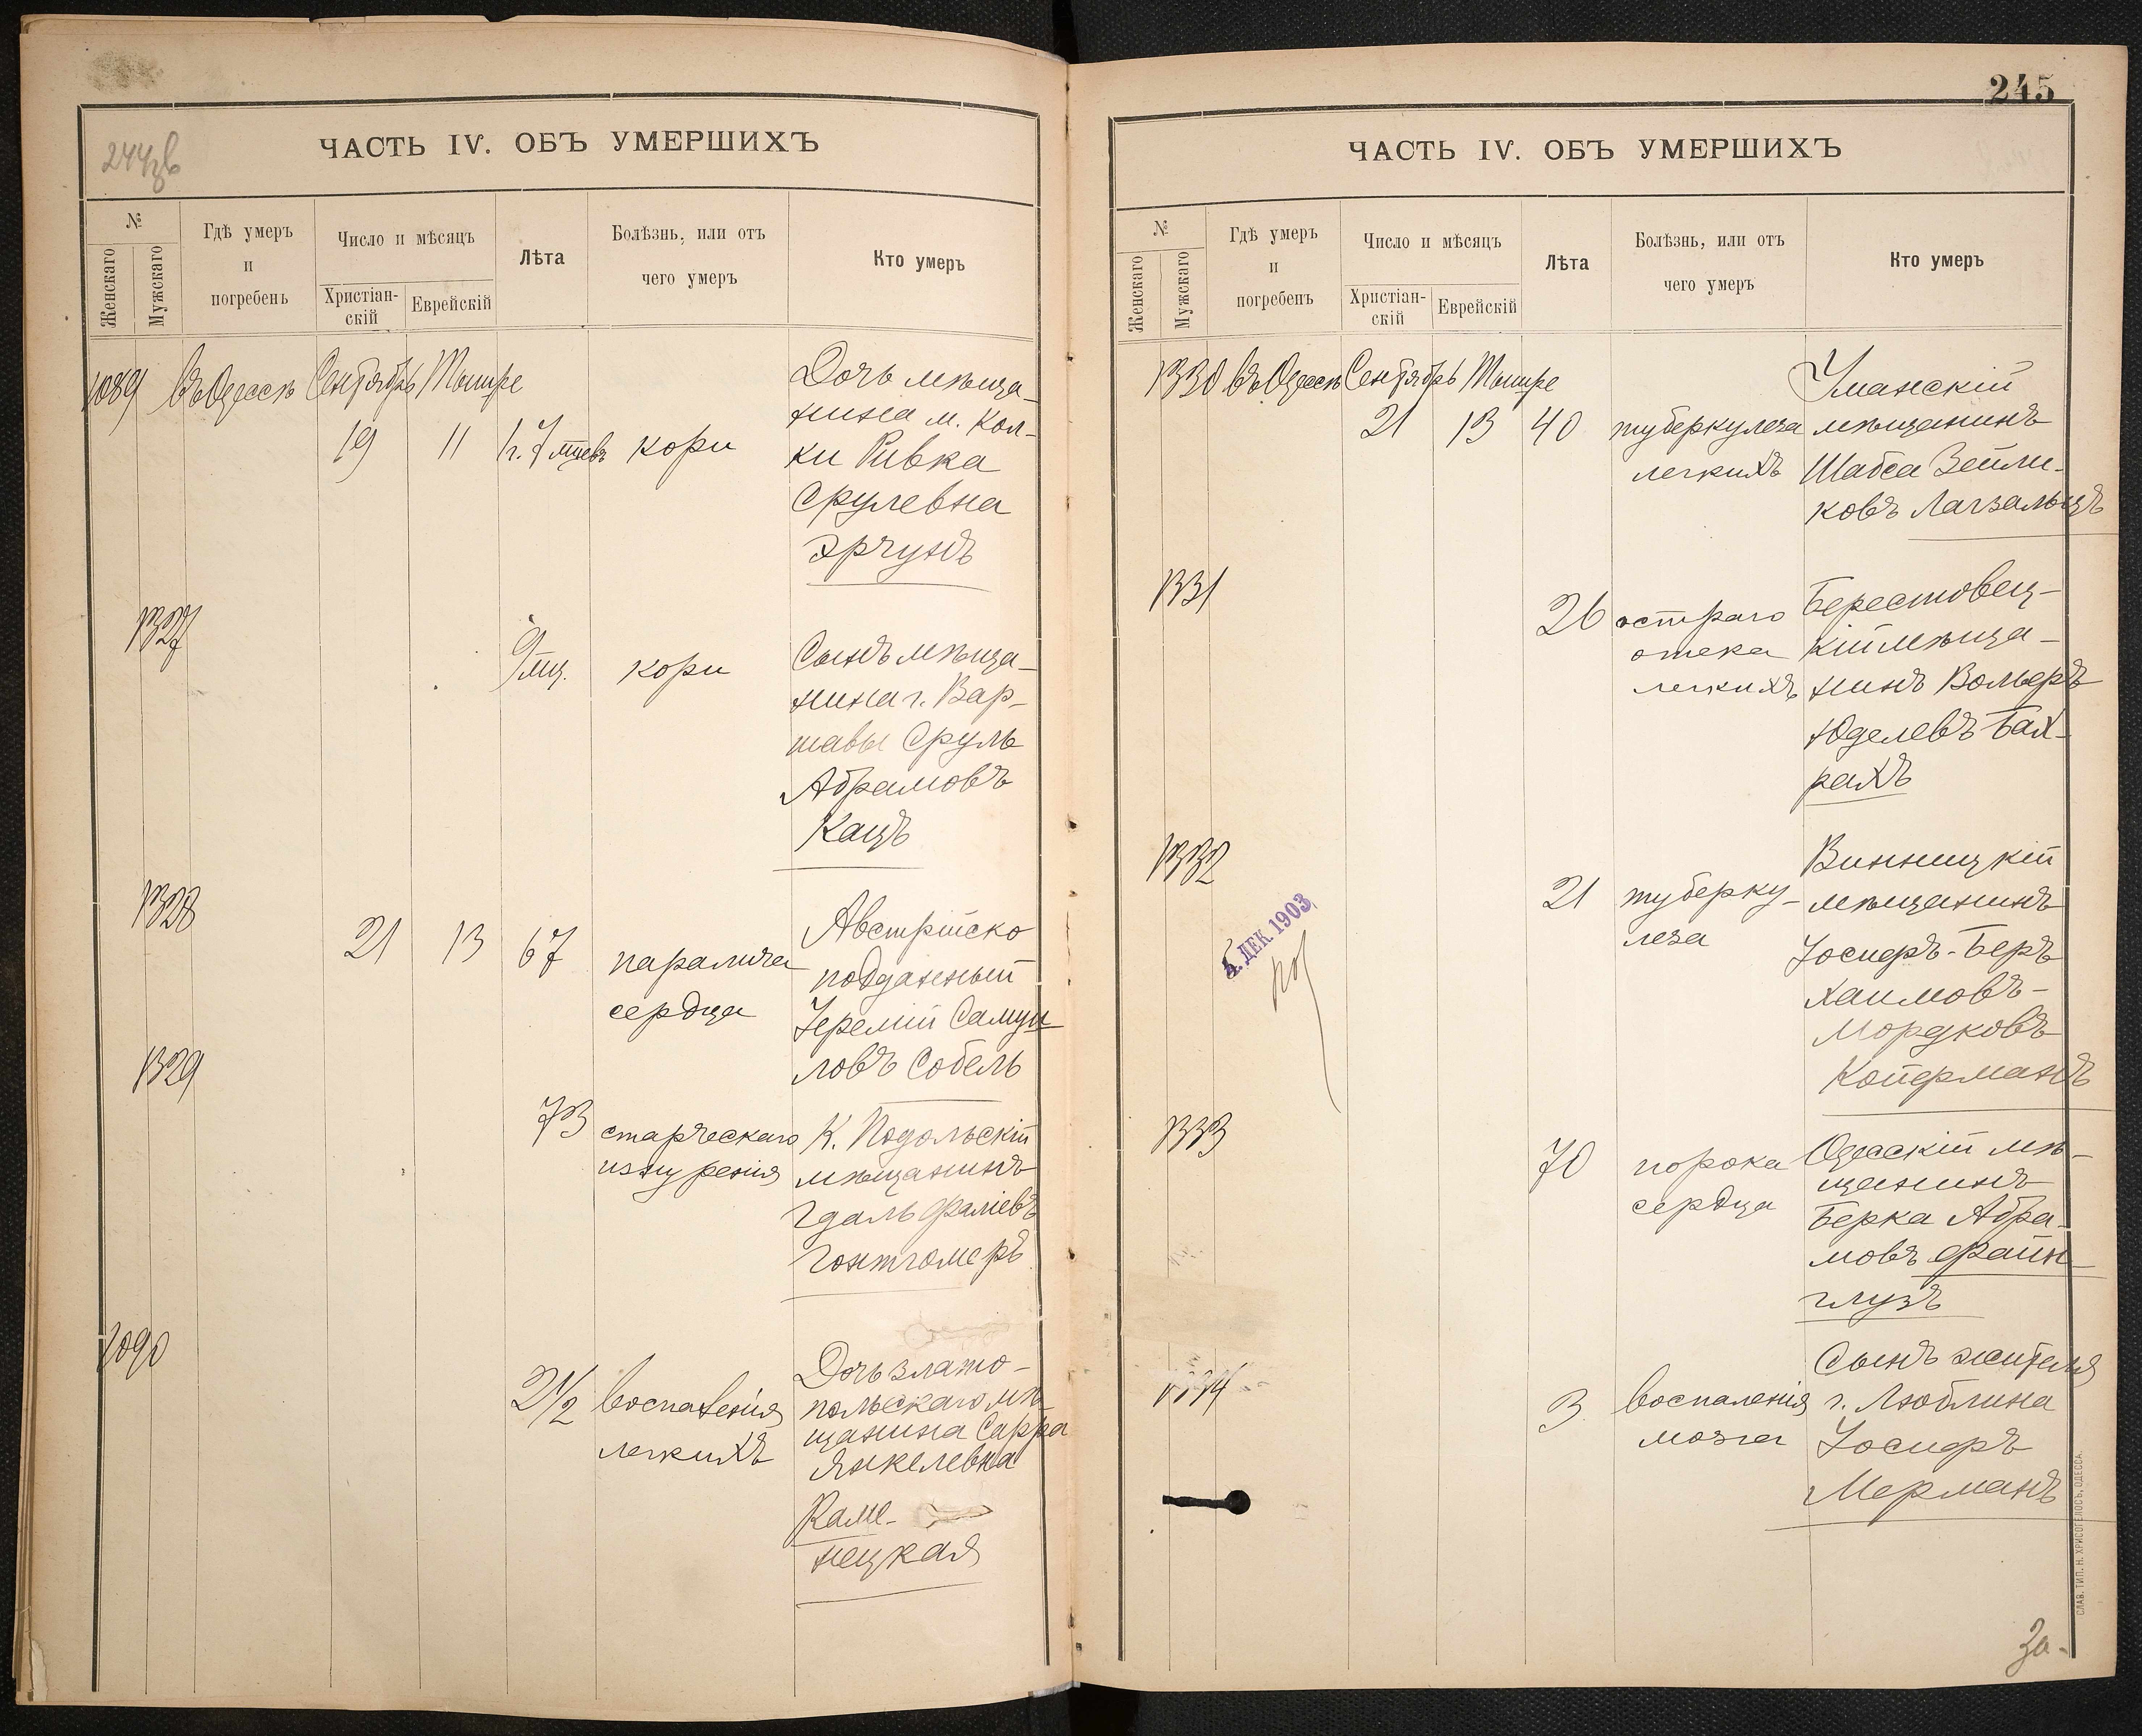 244зв
ЧАСТЬ IV. ОБЪ УМЕРШИХЪ
№
Женскаго
Мужскаго
Гдѣ умеръ
и
погребенъ
Число и мѣсяцъ
Христіан-
скій
Еврейскій
Лѣта
Болѣзнь, или отъ
чего умеръ
Кто умеръ
1089 въ Одессѣ Сентябрь Тишре
19 11 1 г. 7 мцевъ кори
Дочь мѣща-
нина м. Кол-
ки Ривка
Срулевна
Эрчунъ
1327
9 мц. кори
Сынъ мѣща-
нина г. Вар-
шавы Сруль
Абрамовъ
Кацъ
1328
21 13 67 паралича
сердца
Австрійско
подданный
Іеремій Самуи
ловъ Собель
1329
73 старческаго
изнуренія
К. Подольскій
мѣщанинъ
Гдаль Фаліевъ
Гонтгомеръ
1090
2 1/2 воспаленія
легкихъ
Дочь злато-
польскаго мѣ-
щанина Сарра
Янкелевна
Каме-
нецкая
245
ЧАСТЬ IV. ОБЪ УМЕРШИХЪ
№
Женскаго
Мужскаго
Гдѣ умеръ
и
погребенъ
Число и мѣсяцъ
Христіан-
скій
Еврейскій
Лѣта
Болѣзнь, или отъ
чего умеръ
Кто умеръ
1330 въ Одессѣ Сентябрь Тишре
21 13 40 туберкулеза
легкихъ
Уманскій
мѣщанинъ
Шабса Зейли-
ковъ Лагзальцъ
1331
26 остраго
отека
легкихъ
Берестовец-
кій мѣща-
нинъ Вольфъ
Юделевъ Бах-
рахъ
1332
21 туберку-
леза
Винницкій
мѣщанинъ
Іосифъ-Беръ
Хаимовъ-
Мордковъ
Койфманъ
4. ДЕК. 1903
1333
70 порока
сердца
Одесскій мѣ-
щанинъ
Берка Абра-
мовъ Файн-
глузъ
1334
3 воспаленія
мозга
Сынъ жителя
г. Люблина
Іосифъ
Мерманъ
СЛАВ. ТИП. Н. ХРИСОГЕЛОСЪ, ОДЕССА.
За-